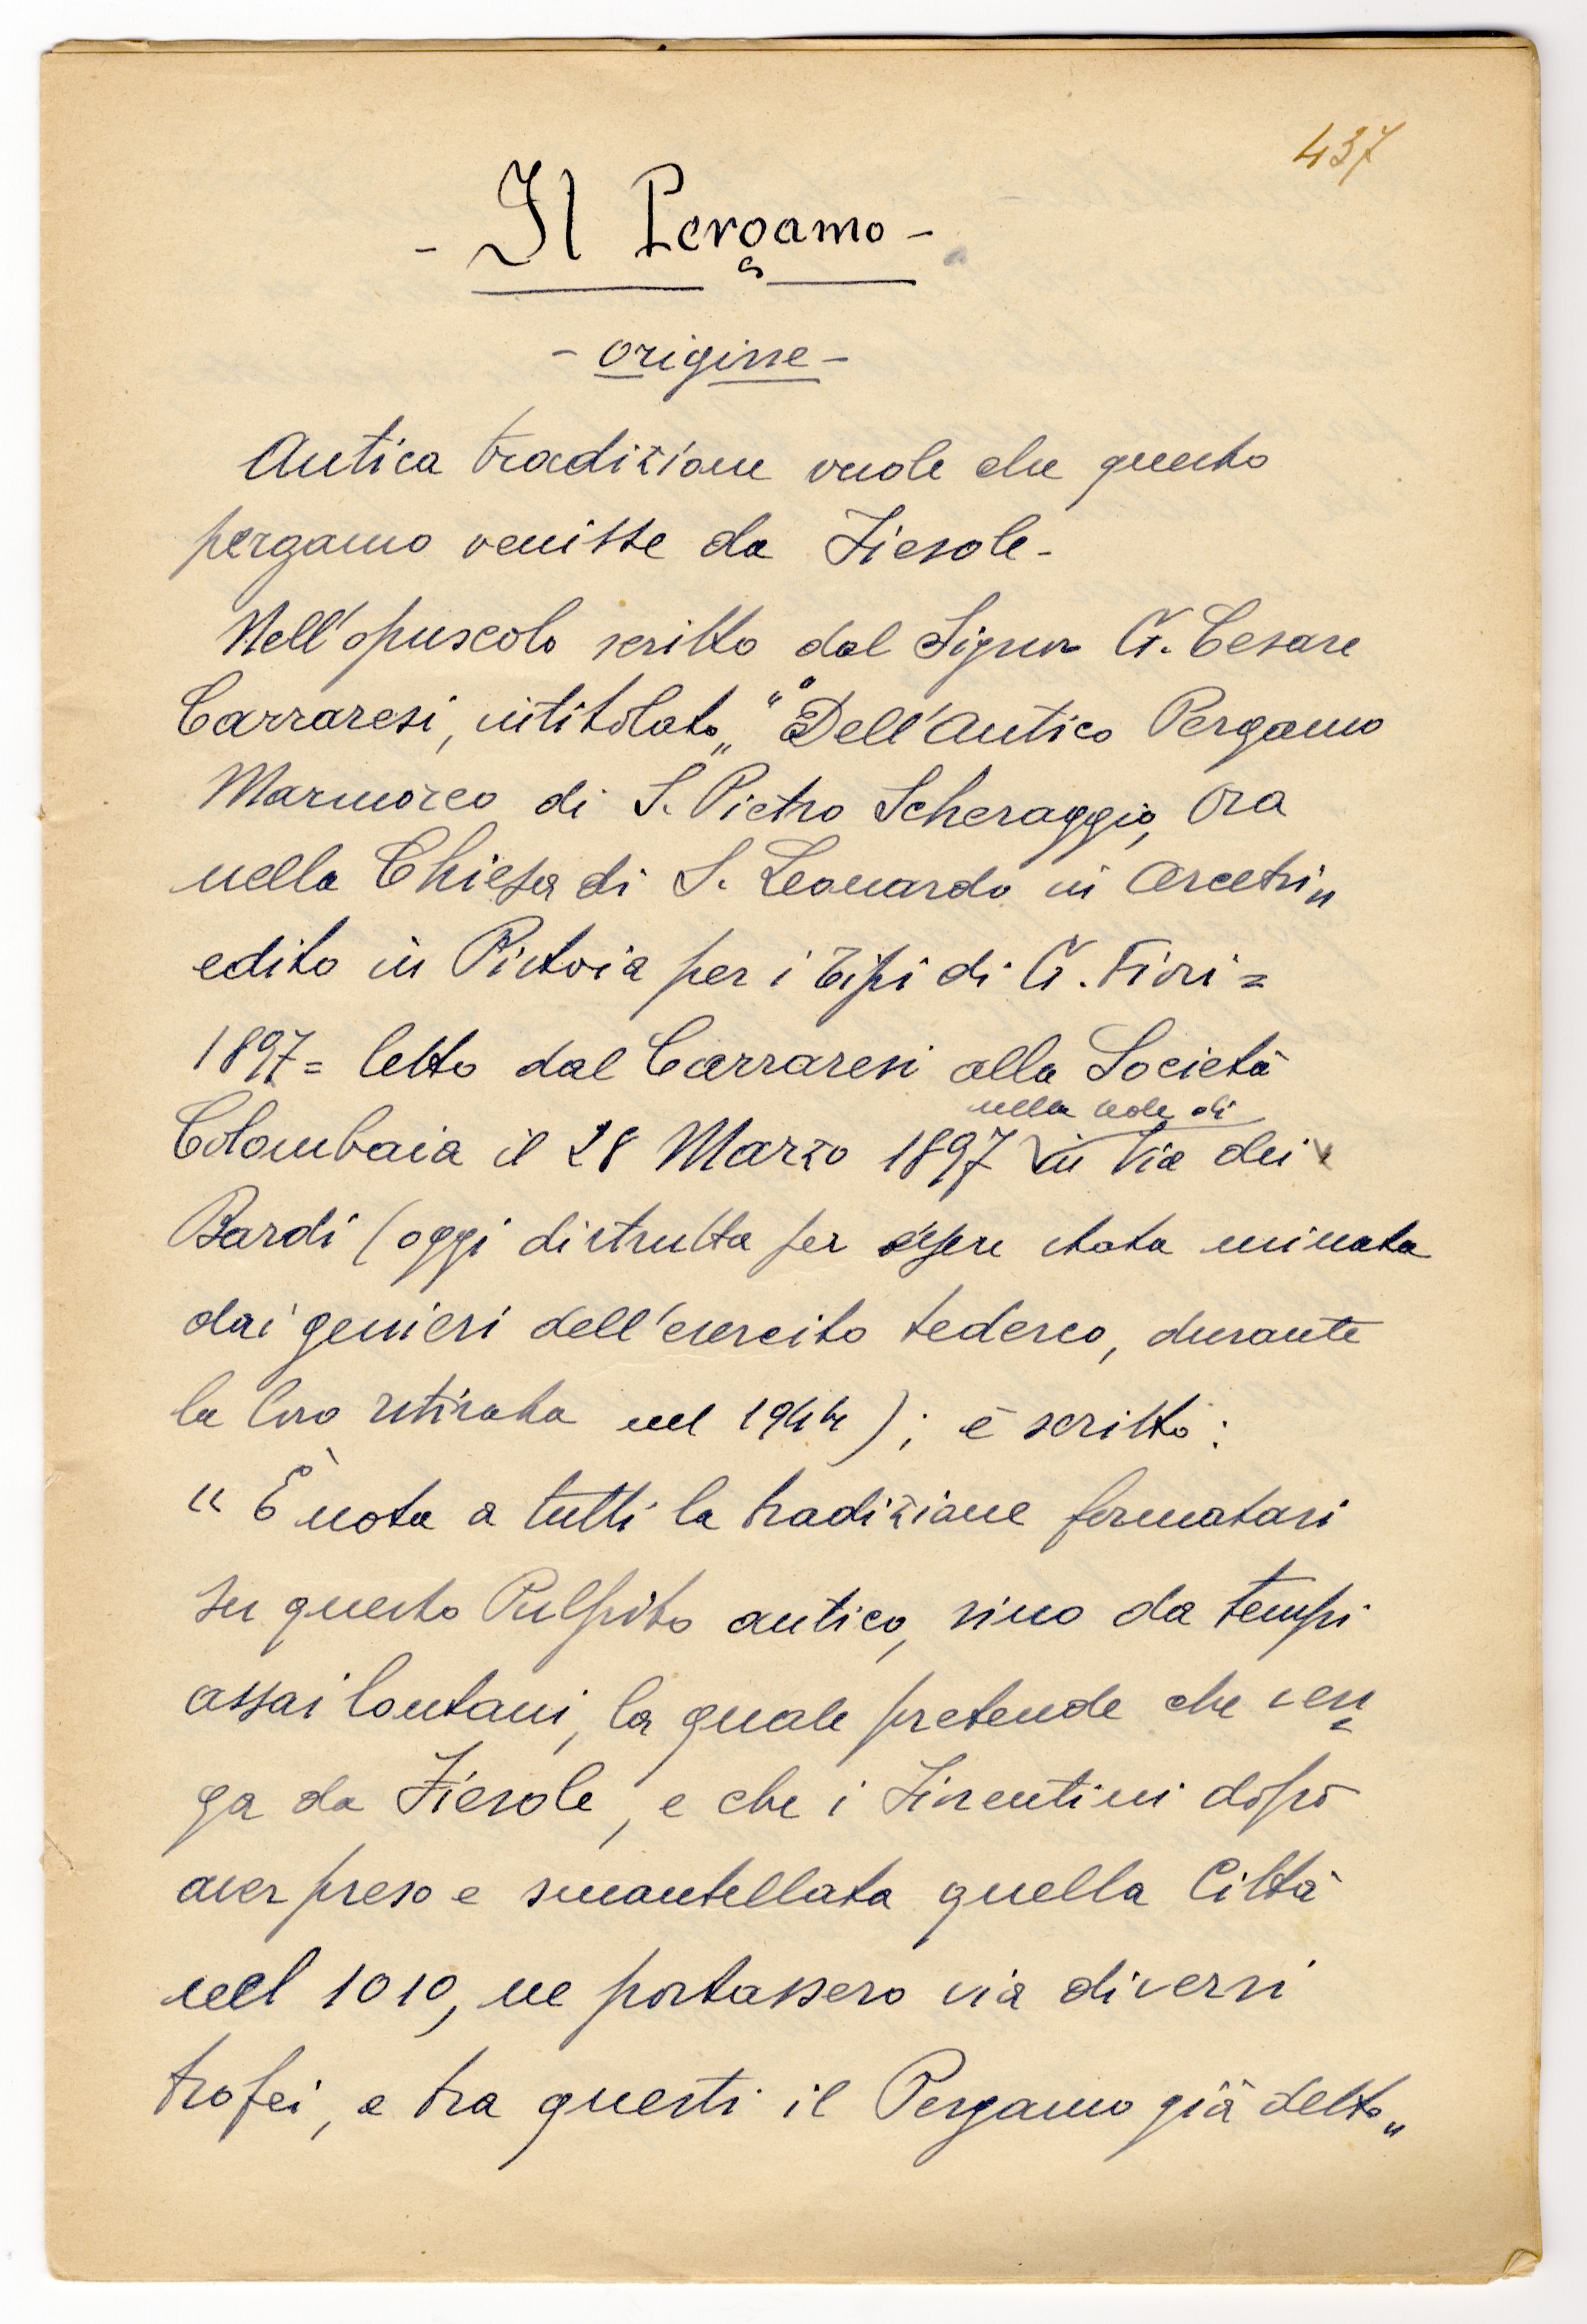 437
- Il Pergamo -
- origine -
Antica tradizione vuole che questo
pergamo venisse da Fiesole -
Nell'opuscolo scritto dal Signor G. Cesare
Carraresi, intitolato „ "Dell'Antico Pergamo
Marmoreo di S. Pietro Scheraggio, ora
nella Chiesa di S. Leonardo in Arcetri„
edito in Pistoia per i tipi di G. Fiori =
1897 = letto dal Carraresi alla Società
nella sede di
Colombaia il 28 Marzo 1897 in Via dei
Bardi (oggi distrutta per essere stata minata
dai genieri dell'esercito tedesco, durante
la loro ritirata nel 1944); è scritto:
“ È nota a tutti la tradizione formatasi
su questo Pulpito antico, sino da tempi
assai lontani, la quale pretende che ven=
ga da Fiesole, e che i Fiorentini dopo
aver preso e smantellata quella Città
nel 1010, ne portassero via diversi
trofei, e tra questi il Pergamo già detto„